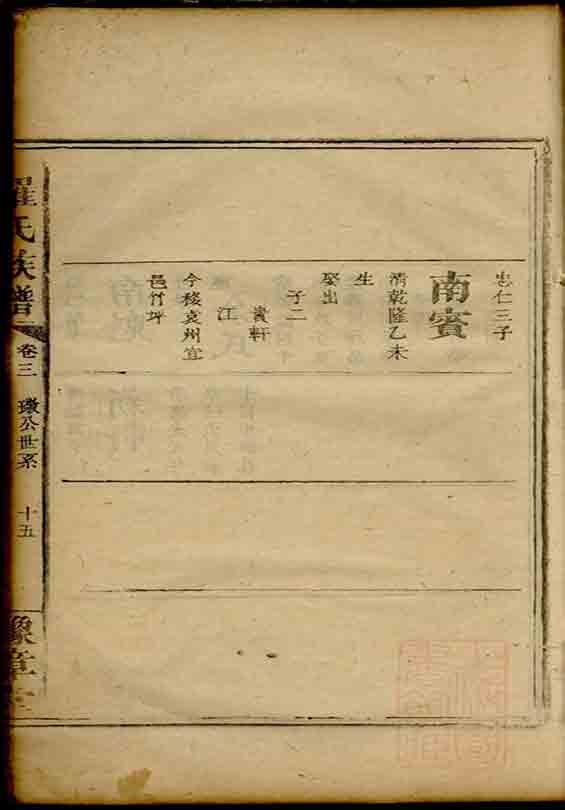 忠仁三子
南賓
清乾隆乙未
生
娶出
子二
賓軒
江
今移袁州宜
邑竹坪
羅氏族譜
卷三
璬公世系
十五
豫章堂